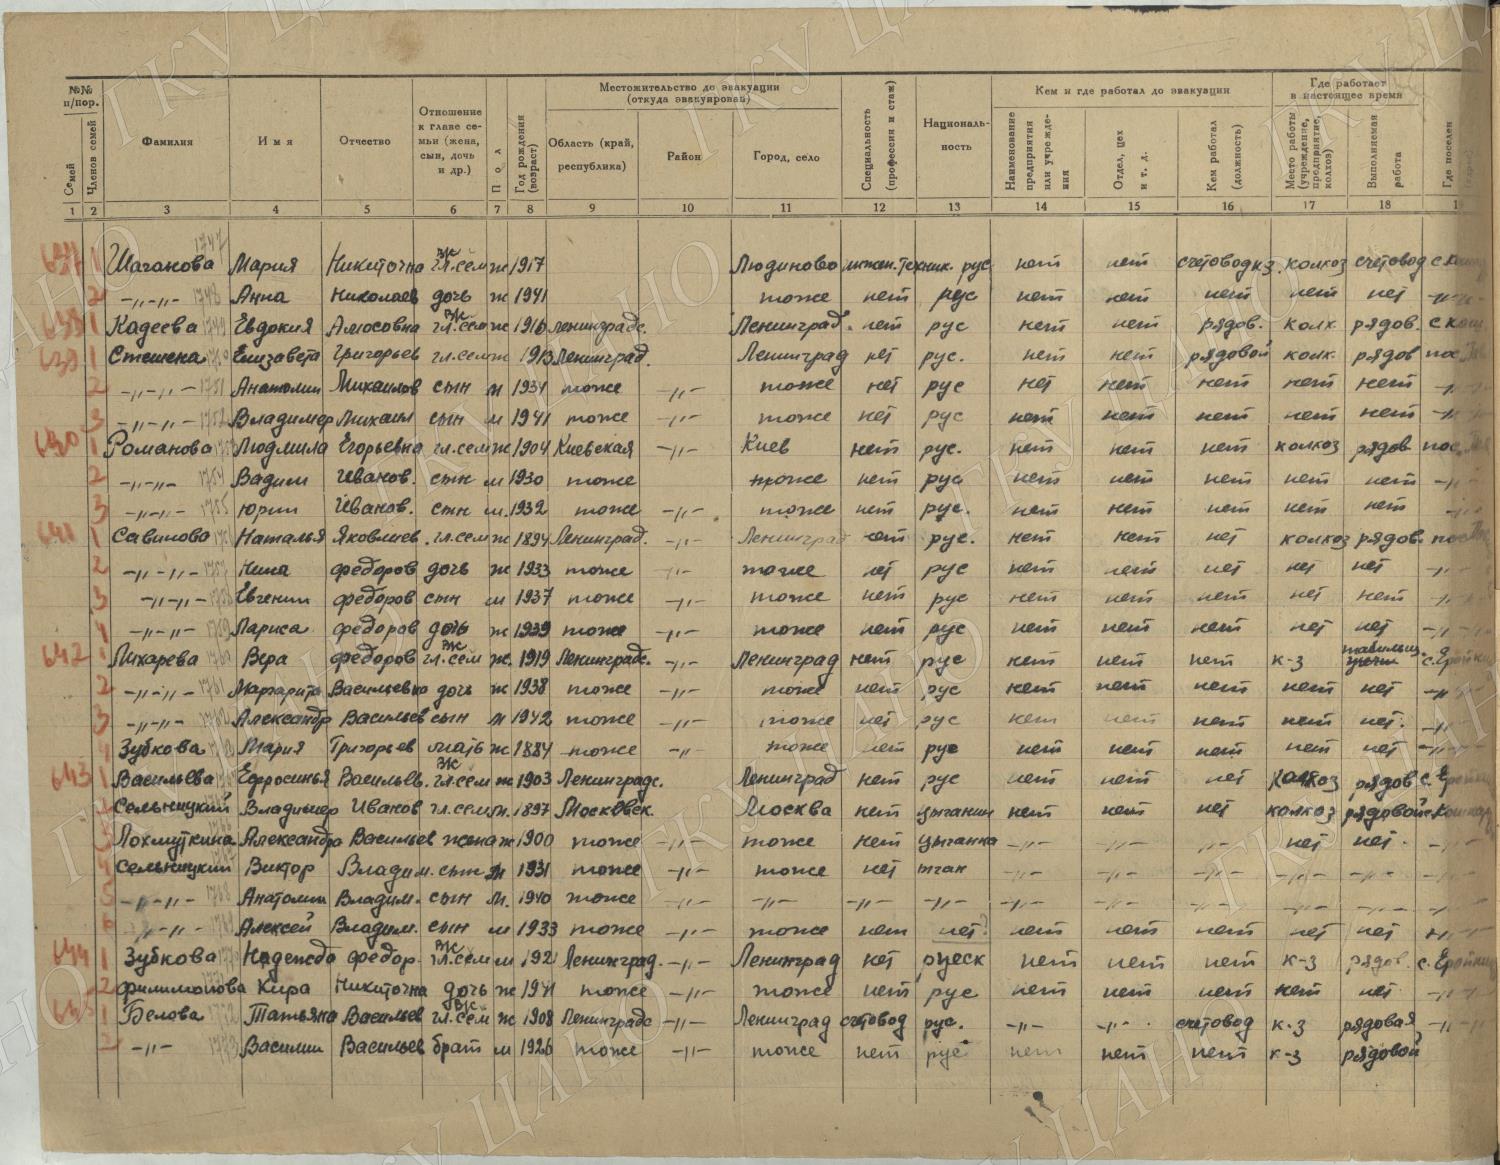 №№ п/пор.
Семей
Членов семей
Фамилия
Имя
Отчество
Отношение к главе семьи (жена, сын, дочь и др.)
Пол
Год рождения (возраст)
Местожительство до эвакуации (откуда эвакуирован)
Область (край, республика)
Район
Город, село
Специальность (профессия и стаж)
Националь-ность
Кем и где работал до эвакуации
Наименование предприятия или учрежде-ния
Отдел, цех и т. д.
Кем работал (должность)
Где работает в настоящее время
Место работы (учреждение, предприятие, колхоз)
Выполняемая работа
Где поселен
1 2 3 4 5 6 7 8 9 10 11 12 13 14 15 16 17 18
1 Шаганова Мария Никиточна гл.сем ж 1917 Людиново рус нет нет счетовод кз. колхоз счетовод
2 -"-"- Анна Николаев дочь ж 1941 тоже нет рус нет нет нет нет нет -"-
1 Кадеева Евдокия Амосовна гл.сем ж 1916 Ленинградс. Ленинград. нет рус нет нет рядов. колх. рядов.
639 1 Стешена Елизавета Григорьев гл.сем ж 1913 Ленинград. Ленинград нет рус. нет нет рядовой колх. рядов пос.
2 -"-"- Анатолии Михаилов сын м 1934 тоже -"- тоже нет рус нет нет нет нет нет -"-
3 -"-"- Владимер Михаил сын м 1941 тоже -"- тоже нет рус нет нет нет нет нет -"-
1 Романова Людмила Егорьевна гл.сем ж 1904 Киевская -"- Киев нет рус. нет нет нет колхоз рядов пос.
2 -"-"- Вадим Иванов. сын м 1930 тоже тоже нет рус нет нет нет нет нет -"-
3 -"-"- Юрии Иванов. сын м. 1932 тоже -"- тоже нет рус. нет нет нет нет нет -"-
641 1 Савинова Наталья Яковлиев. гл.сем ж 1894 Ленинград. -"- Ленинград нет рус. нет нет нет колхоз рядов. пос
2 -"-"- Нина федоров дочь ж 1933 тоже -"- тоже нет рус нет нет нет нет нет -"-
3 -"-"- Евгении федоров сын м 1937 тоже -"- тоже нет рус нет нет нет нет нет -"-
4 -"-"- Лариса федоров дочь ж 1939 тоже -"- тоже нет рус нет нет нет нет нет -"-
642 1 Лихарева Вера федоров гл.сем ж. 1919 Ленинградс. -"- Ленинград нет рус нет нет нет к-з
2 -"-"- Маргарита Васильевна дочь ж 1938 тоже -"- тоже нет рус нет нет нет нет нет -"-
3 -"-"- Александр Васильев сын м 1942 тоже -"- тоже нет рус нет нет нет нет нет. -"-
4 Зубкова Мария Григорьев мать ж 1884 тоже -"- тоже нет рус нет нет нет нет нет -"-
643 1 Васильева Ефросинья Васильев. гл.сем ж 1903 Ленинградс. Ленинград нет рус нет нет нет колхоз рядов
Сельницкий Владимер Иванов гл.сем м. 1897 Московск. Москва нет цыганин нет нет нет колхоз рядовой
3 Лохмуткина Александра Васильев жена ж 1900 тоже -"- тоже нет цыганка -"- -"- -"- нет нет. -"-
4 Сельницкий Виктор Владим. сын м 1931 тоже -"- тоже нет -"- -"- -"- -"- -"- -"-
5 -"-"- Анатолии Владим. сын м. 1940 тоже -"- -"- -"- -"- -"- -"- -"- -"- -"- -"-
6 -"-"- Алексей Владим. сын м 1933 тоже -"- тоже нет нет? нет нет нет нет нет
644 1 Зубкова Надежда федор. гл.сем м 192 Ленинград. -"- Ленинград нет руеск нет нет нет к-з рядов.
2 филимонова Кира Никиточна дочь ж 1941 тоже -"- тоже нет рус нет нет нет нет нет -"-
645 1 Белова Татьяна Васильев гл.сем ж 1908 Ленинградс -"- Ленинград счетовод рус. -"- -"- счетовод к-з рядовая -"-
2 -"- Василии Васильев брат м 1926 тоже -"- тоже нет рус нет нет нет к-з рядовой
ГКУ ЦАНО